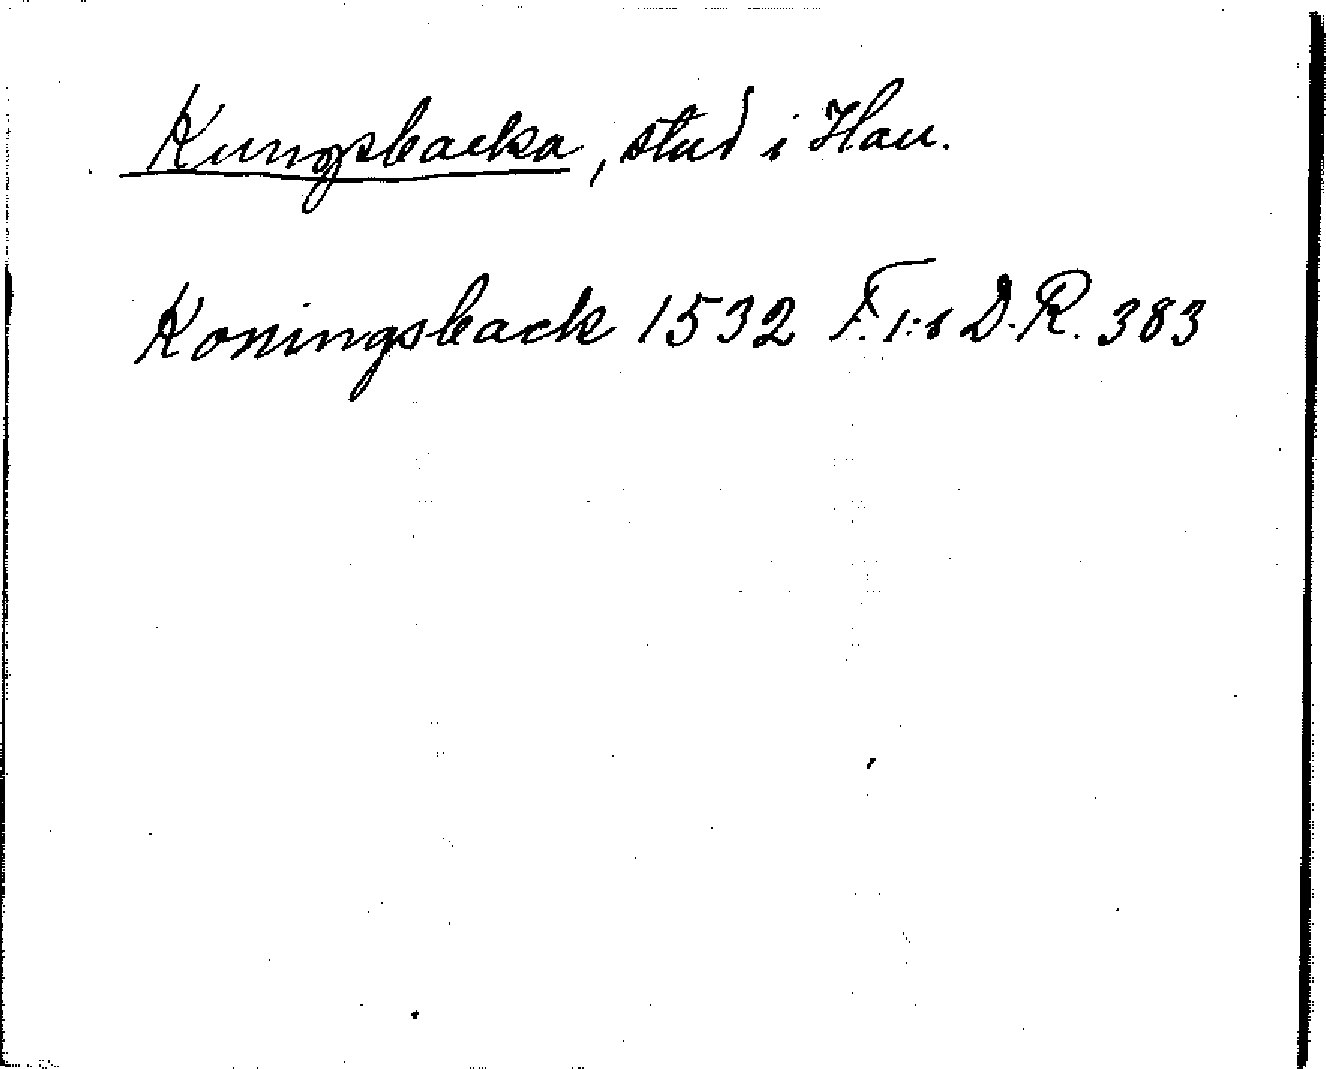 Kungsbacka, stad i Hall.
Koningsback 1532 F. I:s D.R. 383